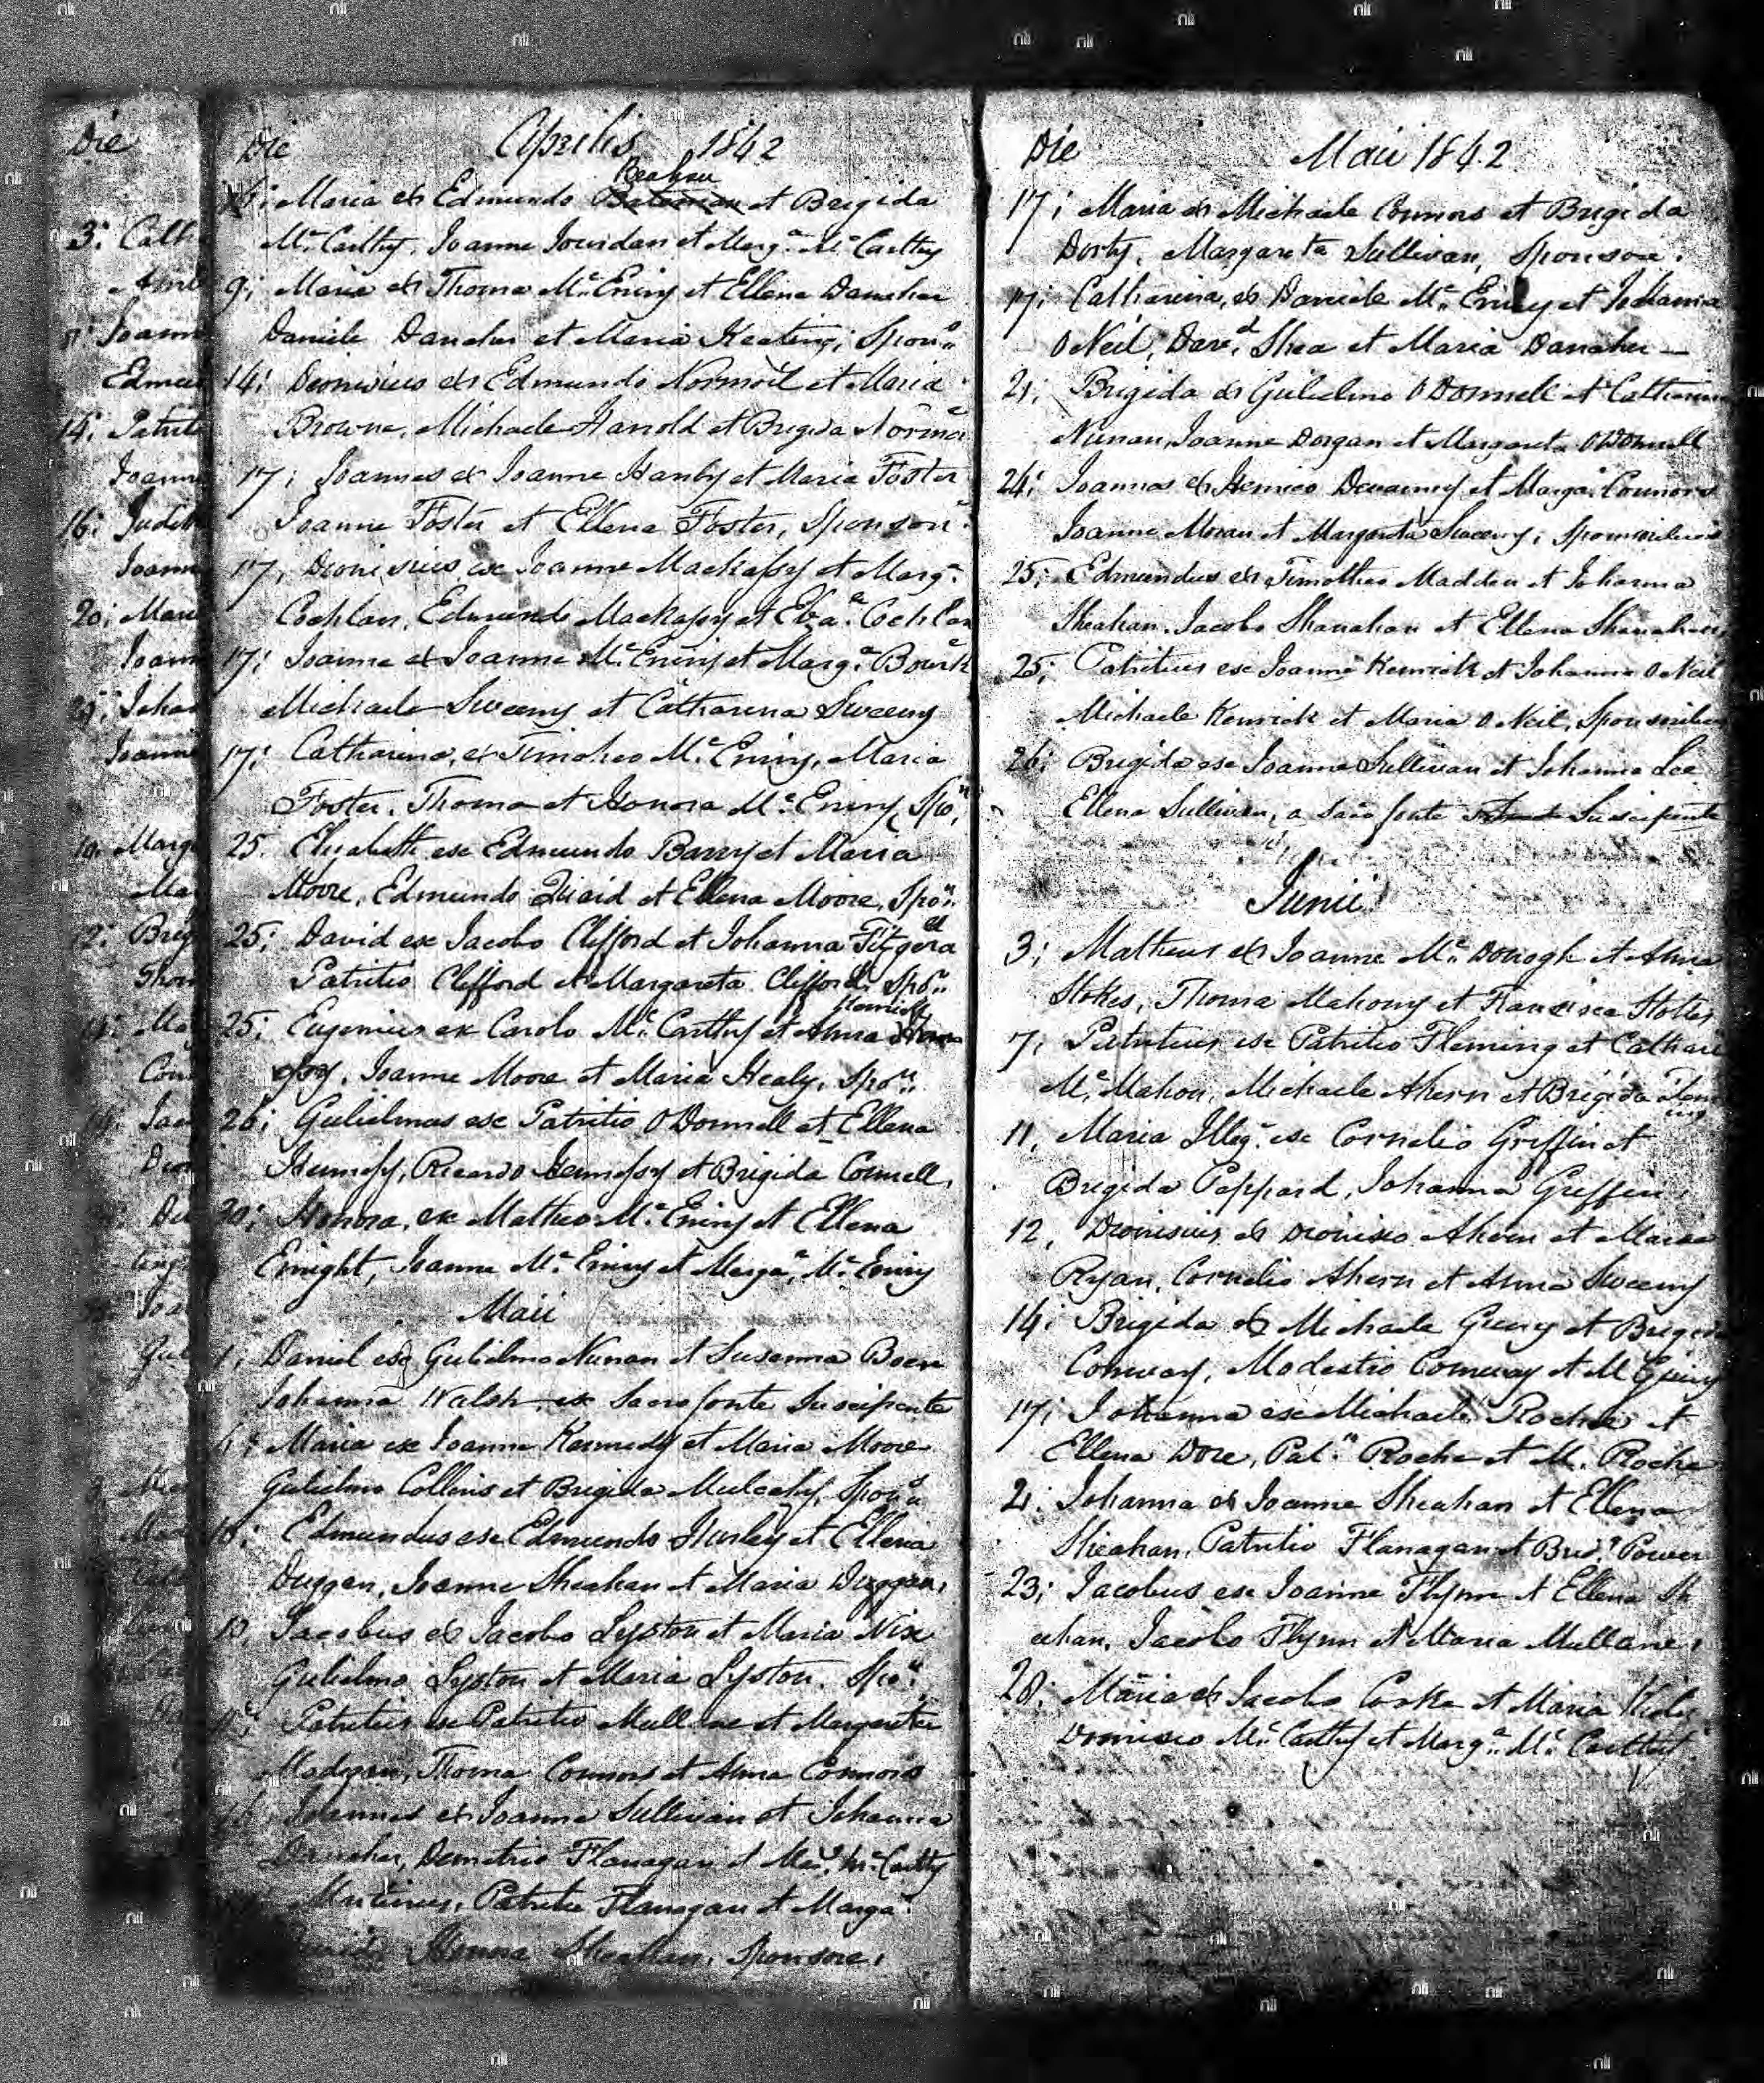 Die
3: Cath
Joann
14: Patrit
Joann
16: Judit
Joann
20: Mari
Joann
Joann
10. Marg
Mar
12: Brig
Thom
Die Aprilis 1842
Maria ex Edmundo et Brigida
Mc Carthy, Joanne Jourdan et Marga Mc Carthy
9; Maria ex Thoma Mc Eniry et Ellena Danaher
Daniele Danaher et Maria Keating; Spon
14; Dionisius ex Edmundo Normoil et Maria
Browne, Michaele Harrold et Brigida Normoi
17; Joannes ex Joanne Hanby et Maria Foster
Joanne Foster et Ellena Foster, Sponsori
17, Dionisius ex Joanne Mackassy et Marg
Coghlan, Edmundo Mackassy et Eliza Coghlan
17; Joanne ex Joanne Mc Eniry et Marga Bourk
Michaele Sweeny et Catharina Sweeny
17; Catharina, ex Timotheo Mc Eniry, Maria
Foster, Thoma et Honora Mc Eniry, Spo
25. Elizabeth ex Edmundo Barry et Maria
Moore, Edmundo Quaid et Ellena Moore, Spo
25; David ex Jacobo Clifford et Johanna Fitzgerald
Patritio Clifford et Margareta Clifford, Spo
25; Eugenius ex Carolo Mc Carthy et Anna
Joanne Moore et Maria Healy, Spo
26; Gulielmus ex Patritio O Donnell et Ellena
Hennessy, Ricardo Hennessy et Brigida Connell,
30; Honora, ex Matheo Mc Eniry et Ellena
Enright, Joanne Mc Eniry et Marga Mc Eniry
Maii
1; Daniel ex Gulielmo Nunan et Susanna
Johanna Walsh, ex Sacro fonte Suscipiente
6; Maria ex Joanne Kennedy et Maria Moore
Gulielmo Collins et Brigida Mulcahy, Spon
10; Edmundus ex Edmundo Hurley et Ellena
Duggan, Joanne Sheahan et Maria Duggan,
10, Jacobus ex Jacobo Lyston et Maria Nix
Gulielmo Lyston et Maria Lyston. Spo
Patritius ex Patritio Mullane et Margareta
Madigan, Thoma Connors et Anna Connors
Joannes ex Joanne Sullivan et Johanna
Danaher, Demetrio Flanagan et Mar Mc Carthy
Patritio Flanagan et Marga
Honora Sheahan. Sponsore,
Die Maii 1842
17; Maria ex Michaele Connors et Brigida
Dorty, Margareta Sullivan, Sponsore.
17; Catharina, ex Daniele Mc Eniry et Johanna
O Neil, David Shea et Maria Danaher —
21; Brigida ex Gulielmo O Donnell et Catharina
Nunan, Joanne Dorgan et Margareta O Donnell
24; Joannas ex Henrico et Marga Connors
Joanne Moran et Margareta Sweeny, Sponsoribus
25; Edmundus ex Timotheo Madden et Johanna
Sheahan, Jacobo Shanahan et Ellena Shanahan
25; Patritius ex Joanne Kenrick et Johanna O Neil
Michaele Kenrick et Maria O Neil, Sponsoribus
26; Brigida ex Joanne Sullivan et Johanna Lee
Ellena Sullivan, a Sacro fonte Suscipiente
Junii
3; Matheus ex Joanne Mc Donogh et Anna
Stokes, Thoma Mahony et Francisca Stokes
7; Patritius ex Patritio Fleming et Cathari
Mc Mahon, Michaele Ahern et Brigida Fleming
11, Maria Illeg. ex Cornelio Griffin et
Brigida Pappard, Johanna Griffin,
12, Dionisius ex Dionisio Ahern et Maria
Ryan, Cornelio Ahern et Anna Sweeny
14; Brigida ex Michaele Guiry et Brigida
Conway, Modestio Conway et M Guiry
17; Johanna ex Michaele Roche et
Ellena Dore, Pat. Roche et M. Roche
21: Johanna ex Joanne Sheahan et Ellena
Sheahan, Patritio Flanagan et Brid. Power
23; Jacobus ex Joanne Flynn et Ellena Sh
eehan, Jacobo Flynn et Maria Mullane,
28; Maria ex Jacobo Corke et Maria
Dionisio Mc Carthy et Marga Mc Carthy